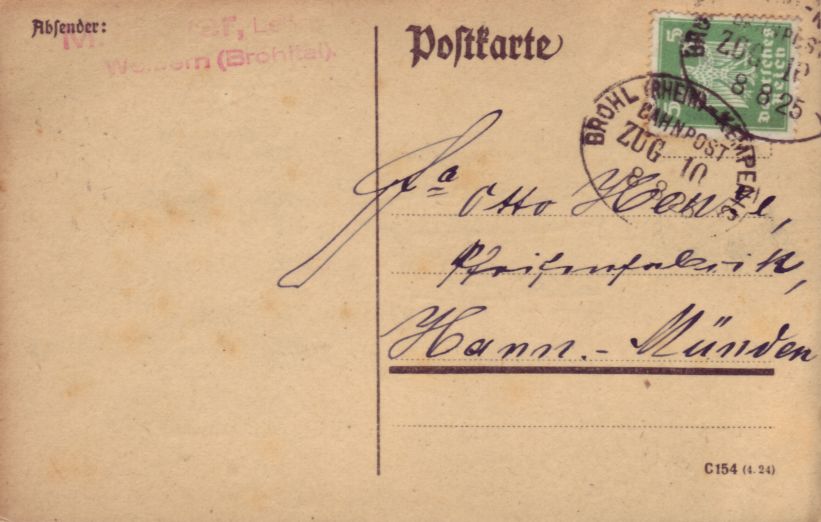 Absender:
Weibern (Brohltal).
Postkarte
5 5
Deutsches
Reich
ZUG 10
8.8.25
BROHL (RHEIN) - KEMPENICH
BAHNPOST
ZUG 10
8.8
Fa Otto Henkel,
Pfeifenfabrik,
Hann.-Münden
C154 (4.24)